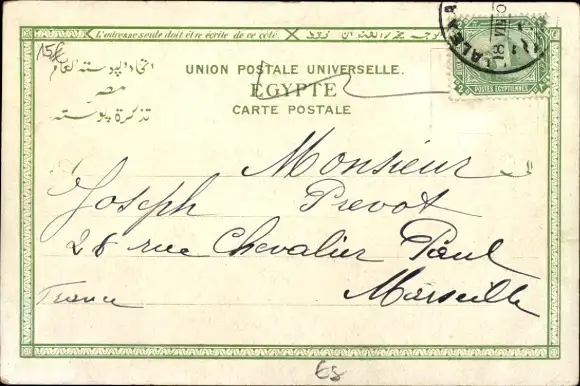 15f
L'adresse seule doit être écrite de ce côté.
UNION POSTALE UNIVERSELLE.
اتحاد البوسته العام
EGYPTE
مصر
CARTE POSTALE
تذكرة بوسته
POSTES EGYPTIENNES
Monsieur
Joseph Prevot
28 rue Chevalier Paul
France Marseille
ES